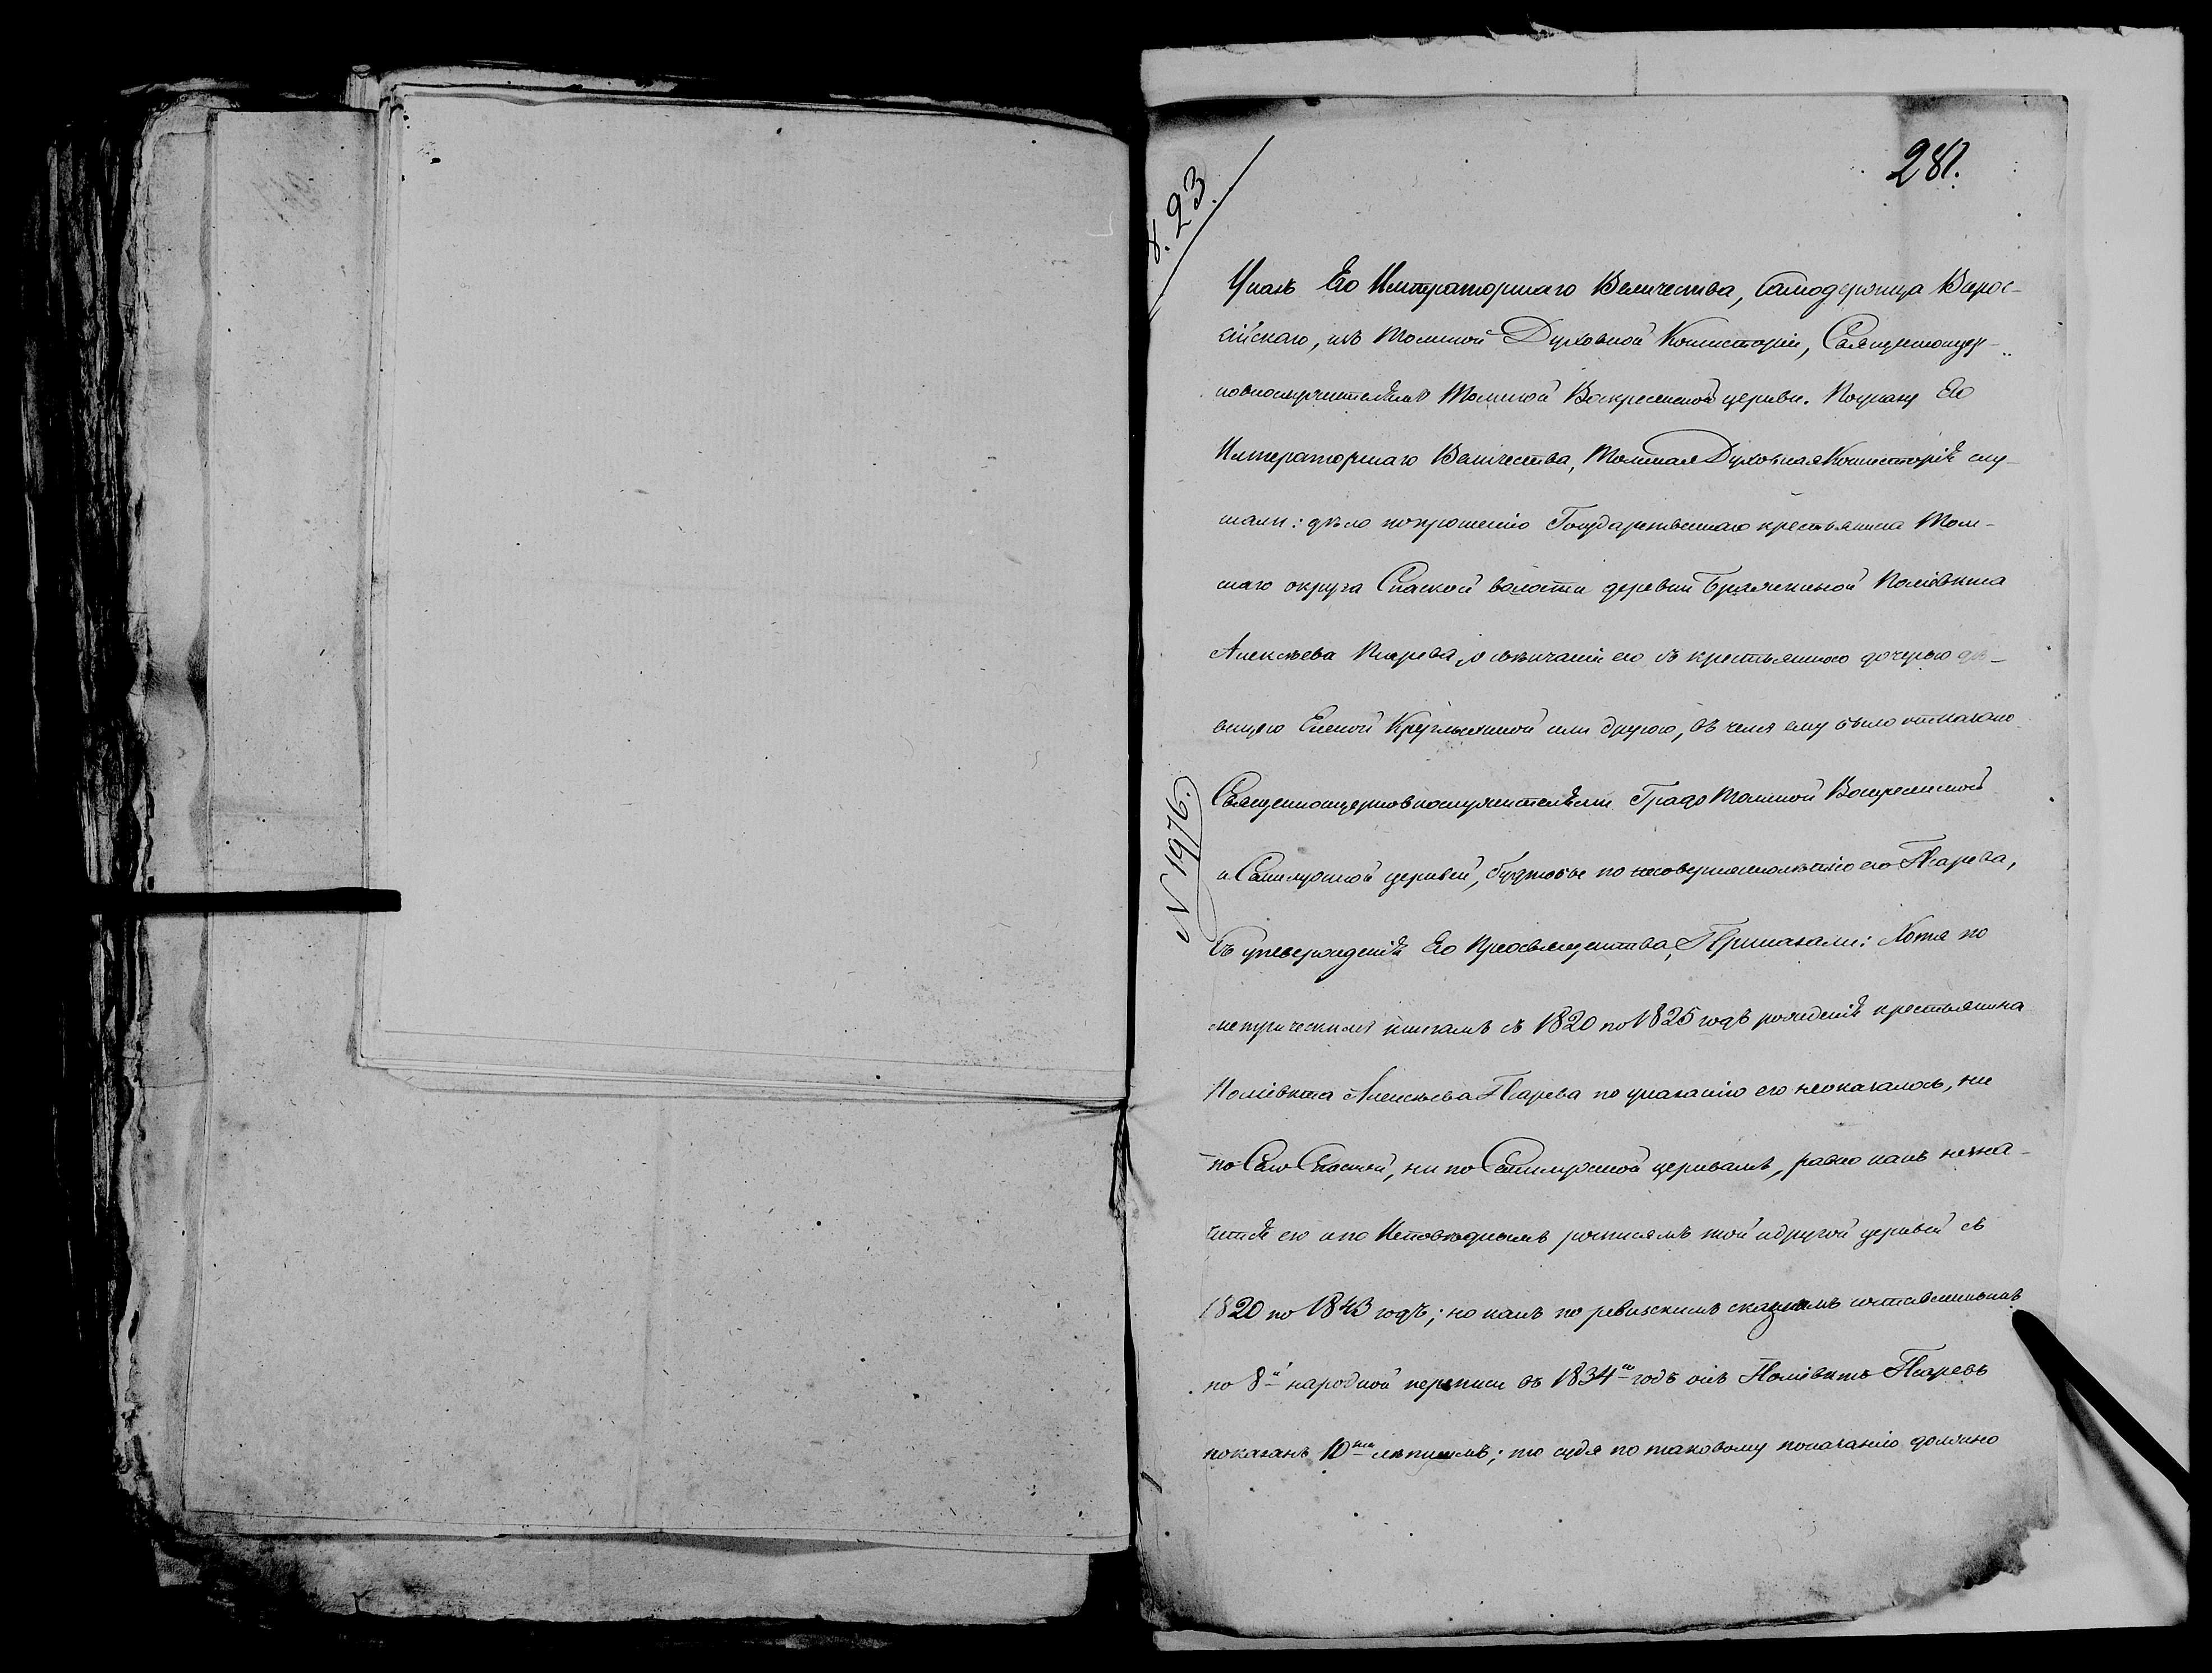 281.
23.
Указъ Его Императорскаго Величества, Самодержца Всерос-
сійскаго, изъ Томской Духовной Консисторіи, Священноцер-
ковнослужителямъ Томской Воскресенской церкви. По указу Его
Императорскаго Величества, Томская Духовная Консисторія слу-
шали: дѣло попрошенію Государственнаго крестьянина Том-
скаго округа Спаской волости деревни Полiевкта
Алексѣева Псарева, о вѣнчаніи его съ крестьянскою дочерью дѣ-
вицею Еленой или другою, въ чемъ ему было отказано
Священноцерковнослужителями Градо Томской Воскресенской
и Семилужной церквей, будтобы по несовершеннолѣтію его Псарева,
Съ утвержденія Его Преосвященства, Приказали: Хотя по
метрическимъ книгамъ съ 1820 по 1825 годъ рожденія крестьянина
Полiевкта Алексѣева Псарева по указанію его неоказалось, ни
по Село Спаской, ни по Семилужной церквамъ, равно какъ незна-
чится его и по Исповѣднымъ росписямъ той и другой церквей съ
1820 по 1843 годъ; но какъ по ревизскимъ сказкамъ составленнымъ
по 8й народной переписи въ 1834м годѣ онъ Полiевктъ Псаревъ
показанъ 10ти лѣтнимъ; то судя по таковому показанію должно
N 1976.